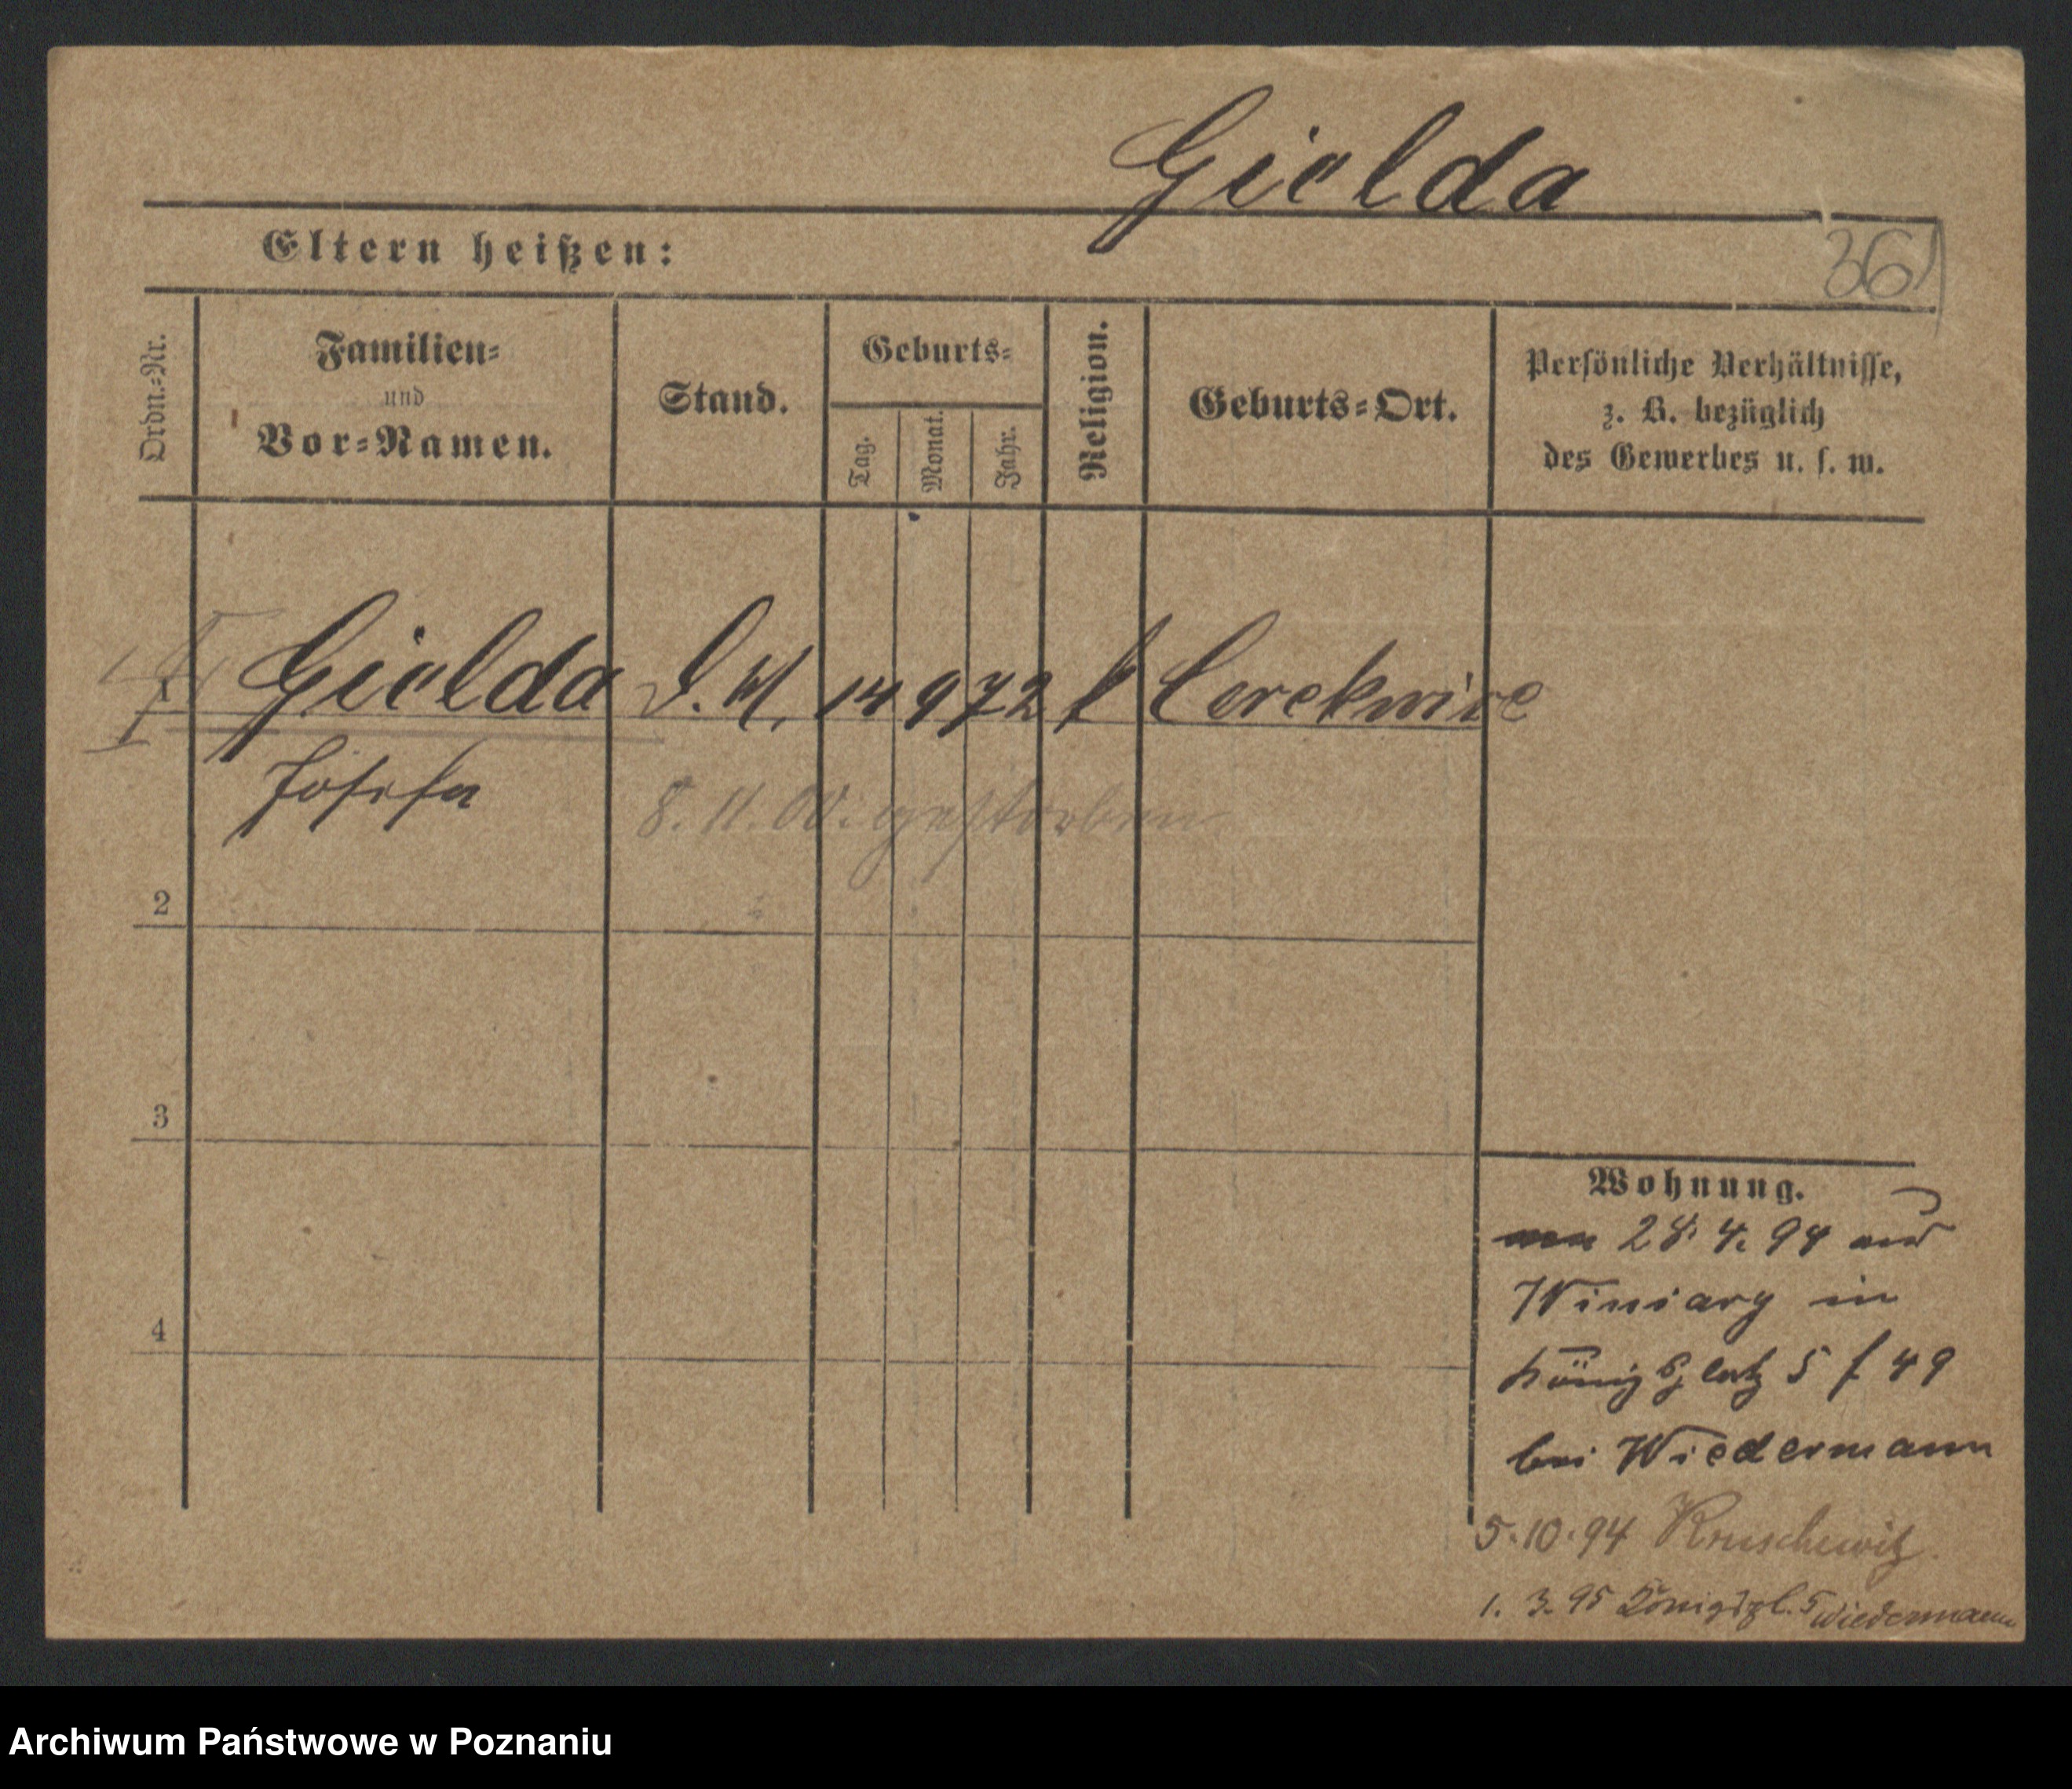 Gielda
Eltern heißen:
361
Ordn.=Nr.
Familien=
und
Vor=Namen.
Stand.
Geburts=
Tag.
Monat.
Jahr.
Religion.
Geburts=Ort.
Persönliche Verhältnisse,
z. B. bezüglich
des Gewerbes u. s. w.
1 Gielda D. M. 14 9 72 k Cerekwice
Josefa
8. 11. 00. gestorben
2
3
4
Wohnung.
28. 4. 94 aus
Winiary in
Königsplatz 5 f 49
bei Wiedermann
5.10.94 Kruschewitz
1. 3. 95 Königspl. 5 Wiedermann
Archiwum Państwowe w Poznaniu